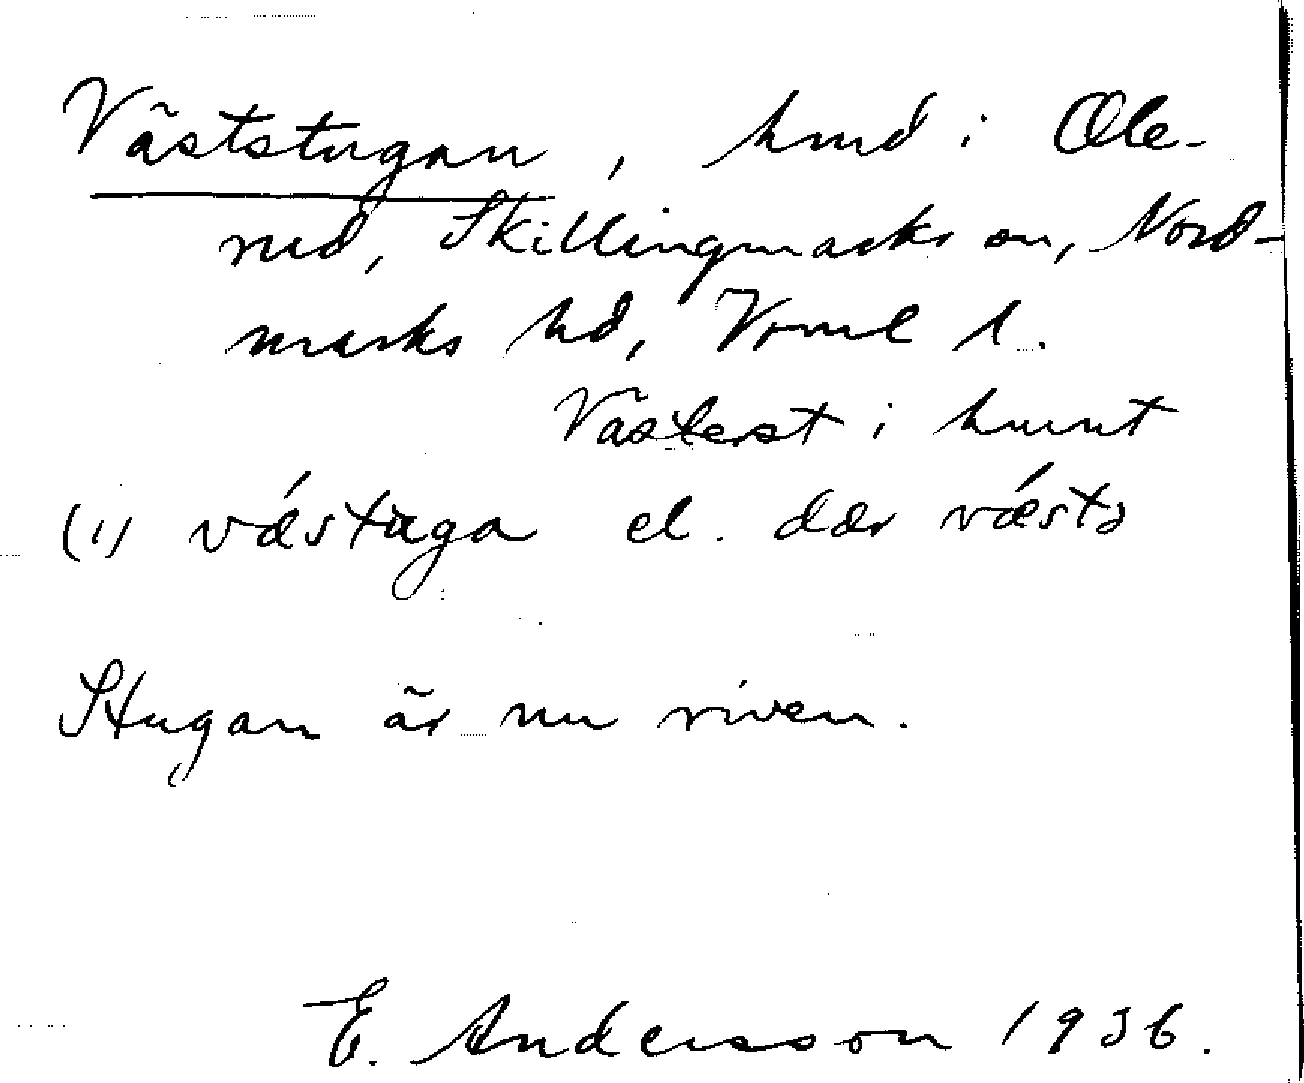 Väststugan, hmd i Ole-
rud, Skillingmarks sn, Nord-
marks hd, Vrml l.
Västerst i hmnt
(i) vǽstuga el. dær vǽstə
Stugan är nu riven.
E. Andersson 1936.